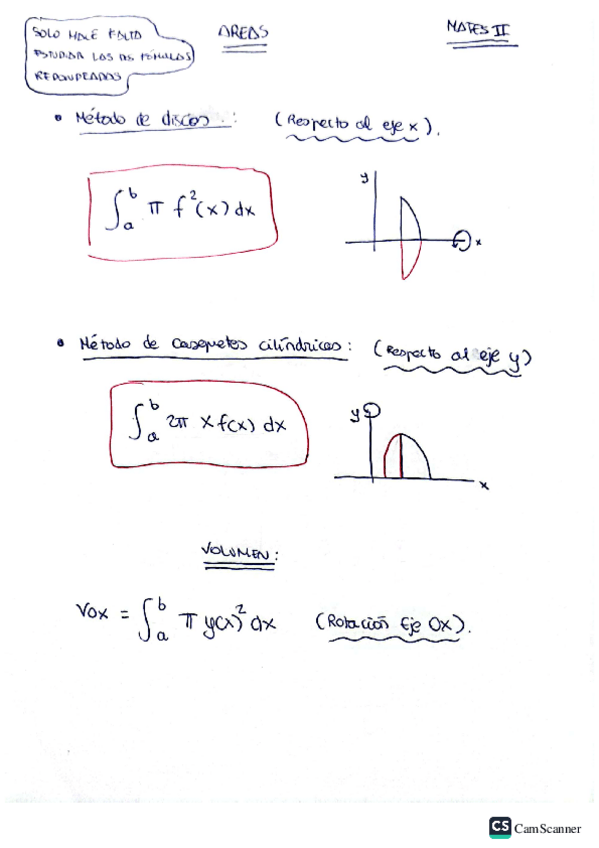 SOLO HACE FALTA
ESTUDIAR LAS DS FÓRMULAS
REDONDEADAS
AREAS
MATES II
• Método de discos.: (Respecto al eje x).
∫ₐᵇ π f²(x) dx
y
x
• Método de casquetes cilíndricos: (Respecto al eje y)
∫ₐᵇ 2π x f(x) dx
y
x
VOLUMEN:
Vox = ∫ₐᵇ π y(x)² dx (Rotación Eje Ox).
CS CamScanner